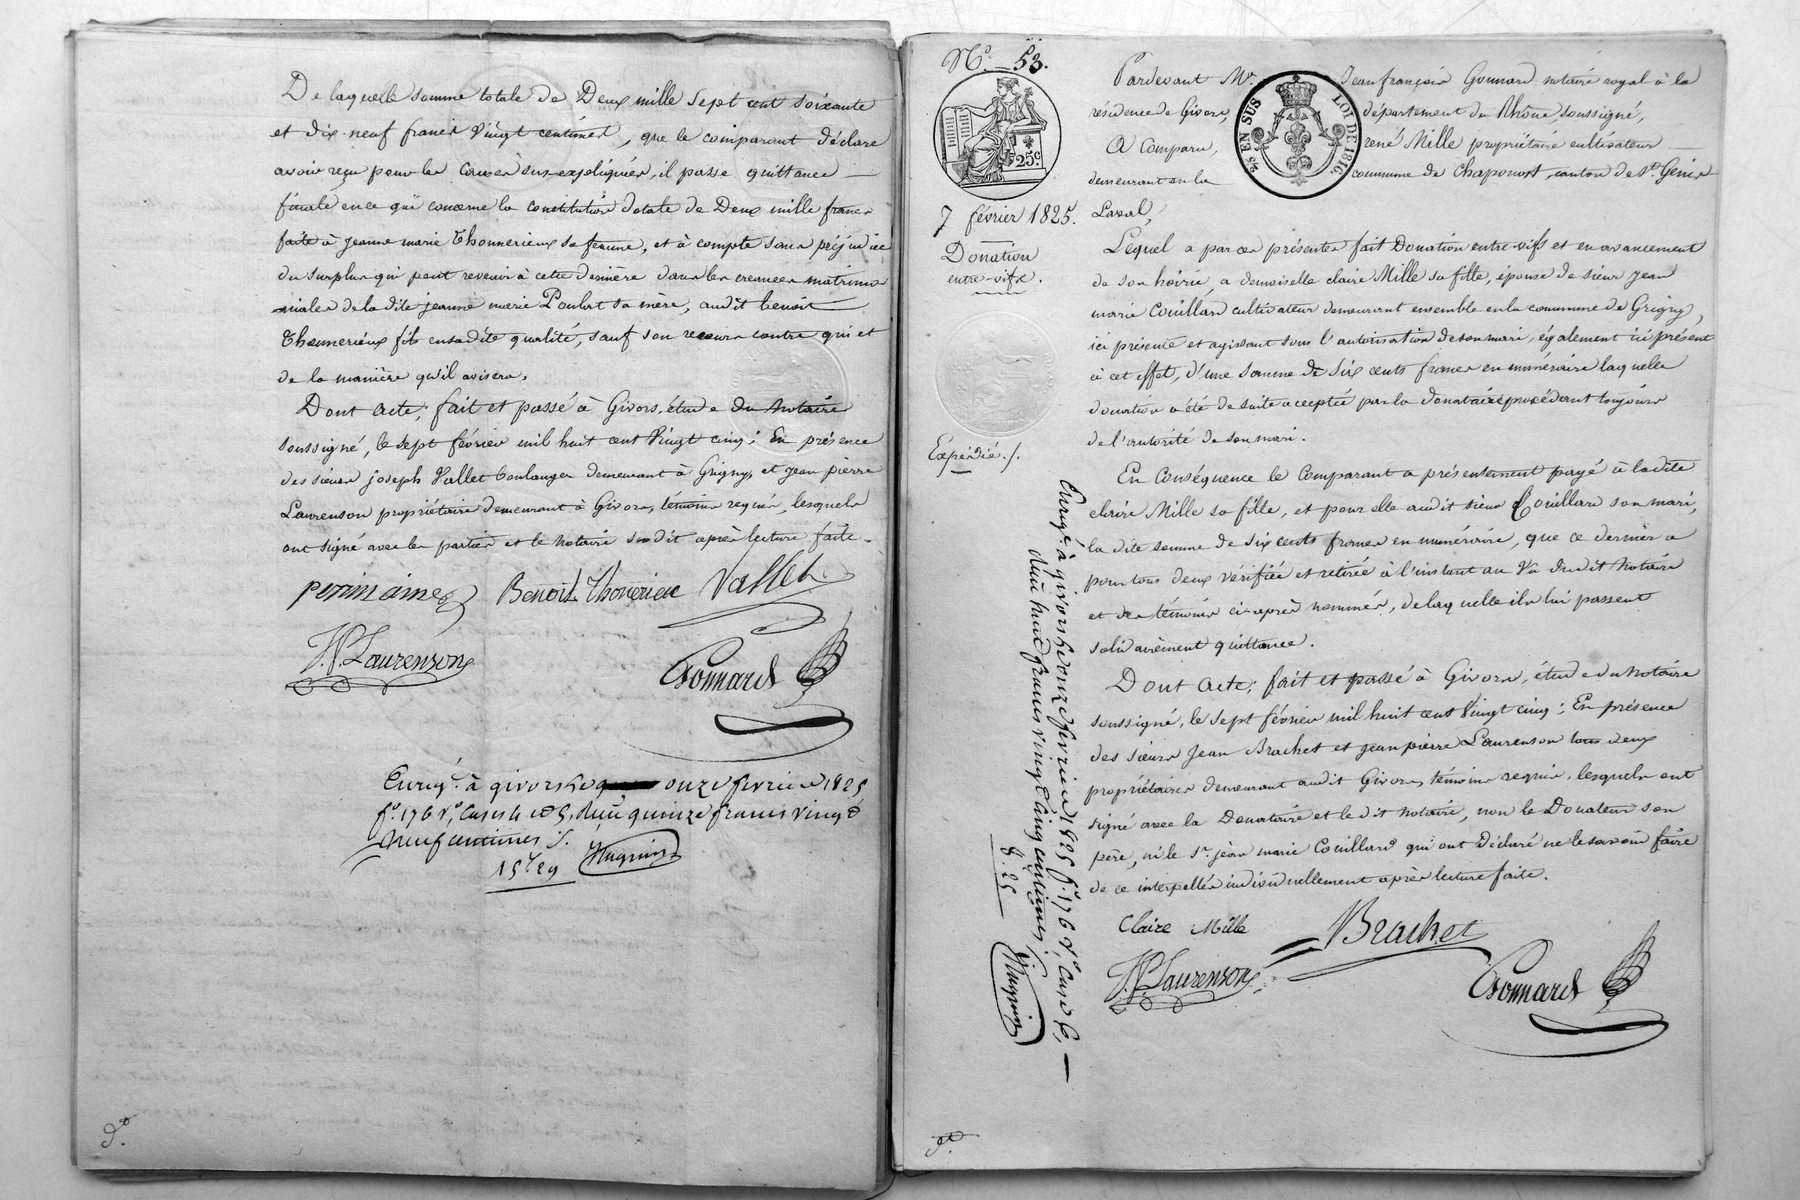 De laquelle somme totale de Deux mille Sept cent soixante
et dix-neuf francs vingt centimes, que le comparant déclare
avoir reçu pour les causes sus-expliquées, il passe quittance
finale en ce qui concerne la constitution dotale de Deux mille francs
faite à jeanne marie Thonnerieux sa femme, et à compte sans préjudice
du surplus qui peut revenir à cette dernière dans les creances matrimo
niales de la dite jeanne marie sa mère, audit benoit
Thonnerieux fils en sa dite qualité, sauf son recours contre qui et
de la manière qu'il avisera.
Dont Acte; fait et passé à Givors, étude du Notaire
soussigné, le sept février mil huit cent vingt cinq; En présence
des sieurs joseph Vallet boulanger demeurant à Grigny, et jean pierre
Laurenson propriétaire demeurant à Givors, témoins requis, lesquels
ont signé avec les parties et le Notaire susdit après lecture faite.
Benoit Thonerieux Vallet
J. P. Laurenson
Gonnard
Enrigé. à givors le onze fevrier 1825
fo. 176 Vo. Cases 4 et 5, Reçu quinze francs vingt
Neuf centimes
15f 29
Nº. 53.
25c
7 février 1825.
Donation
entre-vifs.
Expédié ./.
Pardevant Me. Jean françois Gonnard notaire royal à la
résidence de Givors, département du Rhône soussigné,
2/5 EN SUS
LOI DE 1816.
A Comparu, rené Mille propriétaire cultivateur
demeurant en la commune de Chaponost, canton de St. Genis
Laval,
Lequel a par ces présentes fait Donation entre-vifs et en avancement
de son hoirie, a demoiselle claire Mille sa fille, épouse de sieur Jean
marie Couillard cultivateur demeurant ensemble en la commune de Grigny,
ici présente et agissant sous l'autorisation de son mari, également ici présent
à cet effet, d'une somme de six cents francs en numéraire laquelle
donation a été de suite acceptée par la donataire procédant toujours
de l'autorité de son mari.
En Conséquence le Comparant a présentement payé à ladite
claire Mille sa fille, et pour elle audit sieur Couillard son mari,
la dite somme de six cents francs en numéraire, que ce dernier a
pour tous deux vérifiée et retirée à l'instant au Vu dudit Notaire
et des témoins ci-après nommés, de laquelle ils lui passent
solidairement quittance.
Dont Acte; fait et passé à Givors, étude du Notaire
soussigné, le sept février mil huit cent vingt cinq; En présence
des sieurs Jean Brachet et jean pierre Laurenson tous deux
propriétaires demeurant audit Givors, témoins requis, lesquels ont
signé avec la Donataire et le dit Notaire, non le Donateur son
père, ni le Sr. jean marie Couillard qui ont déclaré ne le savoir faire
de ce interpellés individuellement après lecture faite.
Enrigé. à givors le onze fevrier 1825 fo. 176 Vo. Case 6,
Reçu huit francs vingt cinq centimes
8.25
Claire Mille
Brachet
J. P. Laurenson
Gonnard